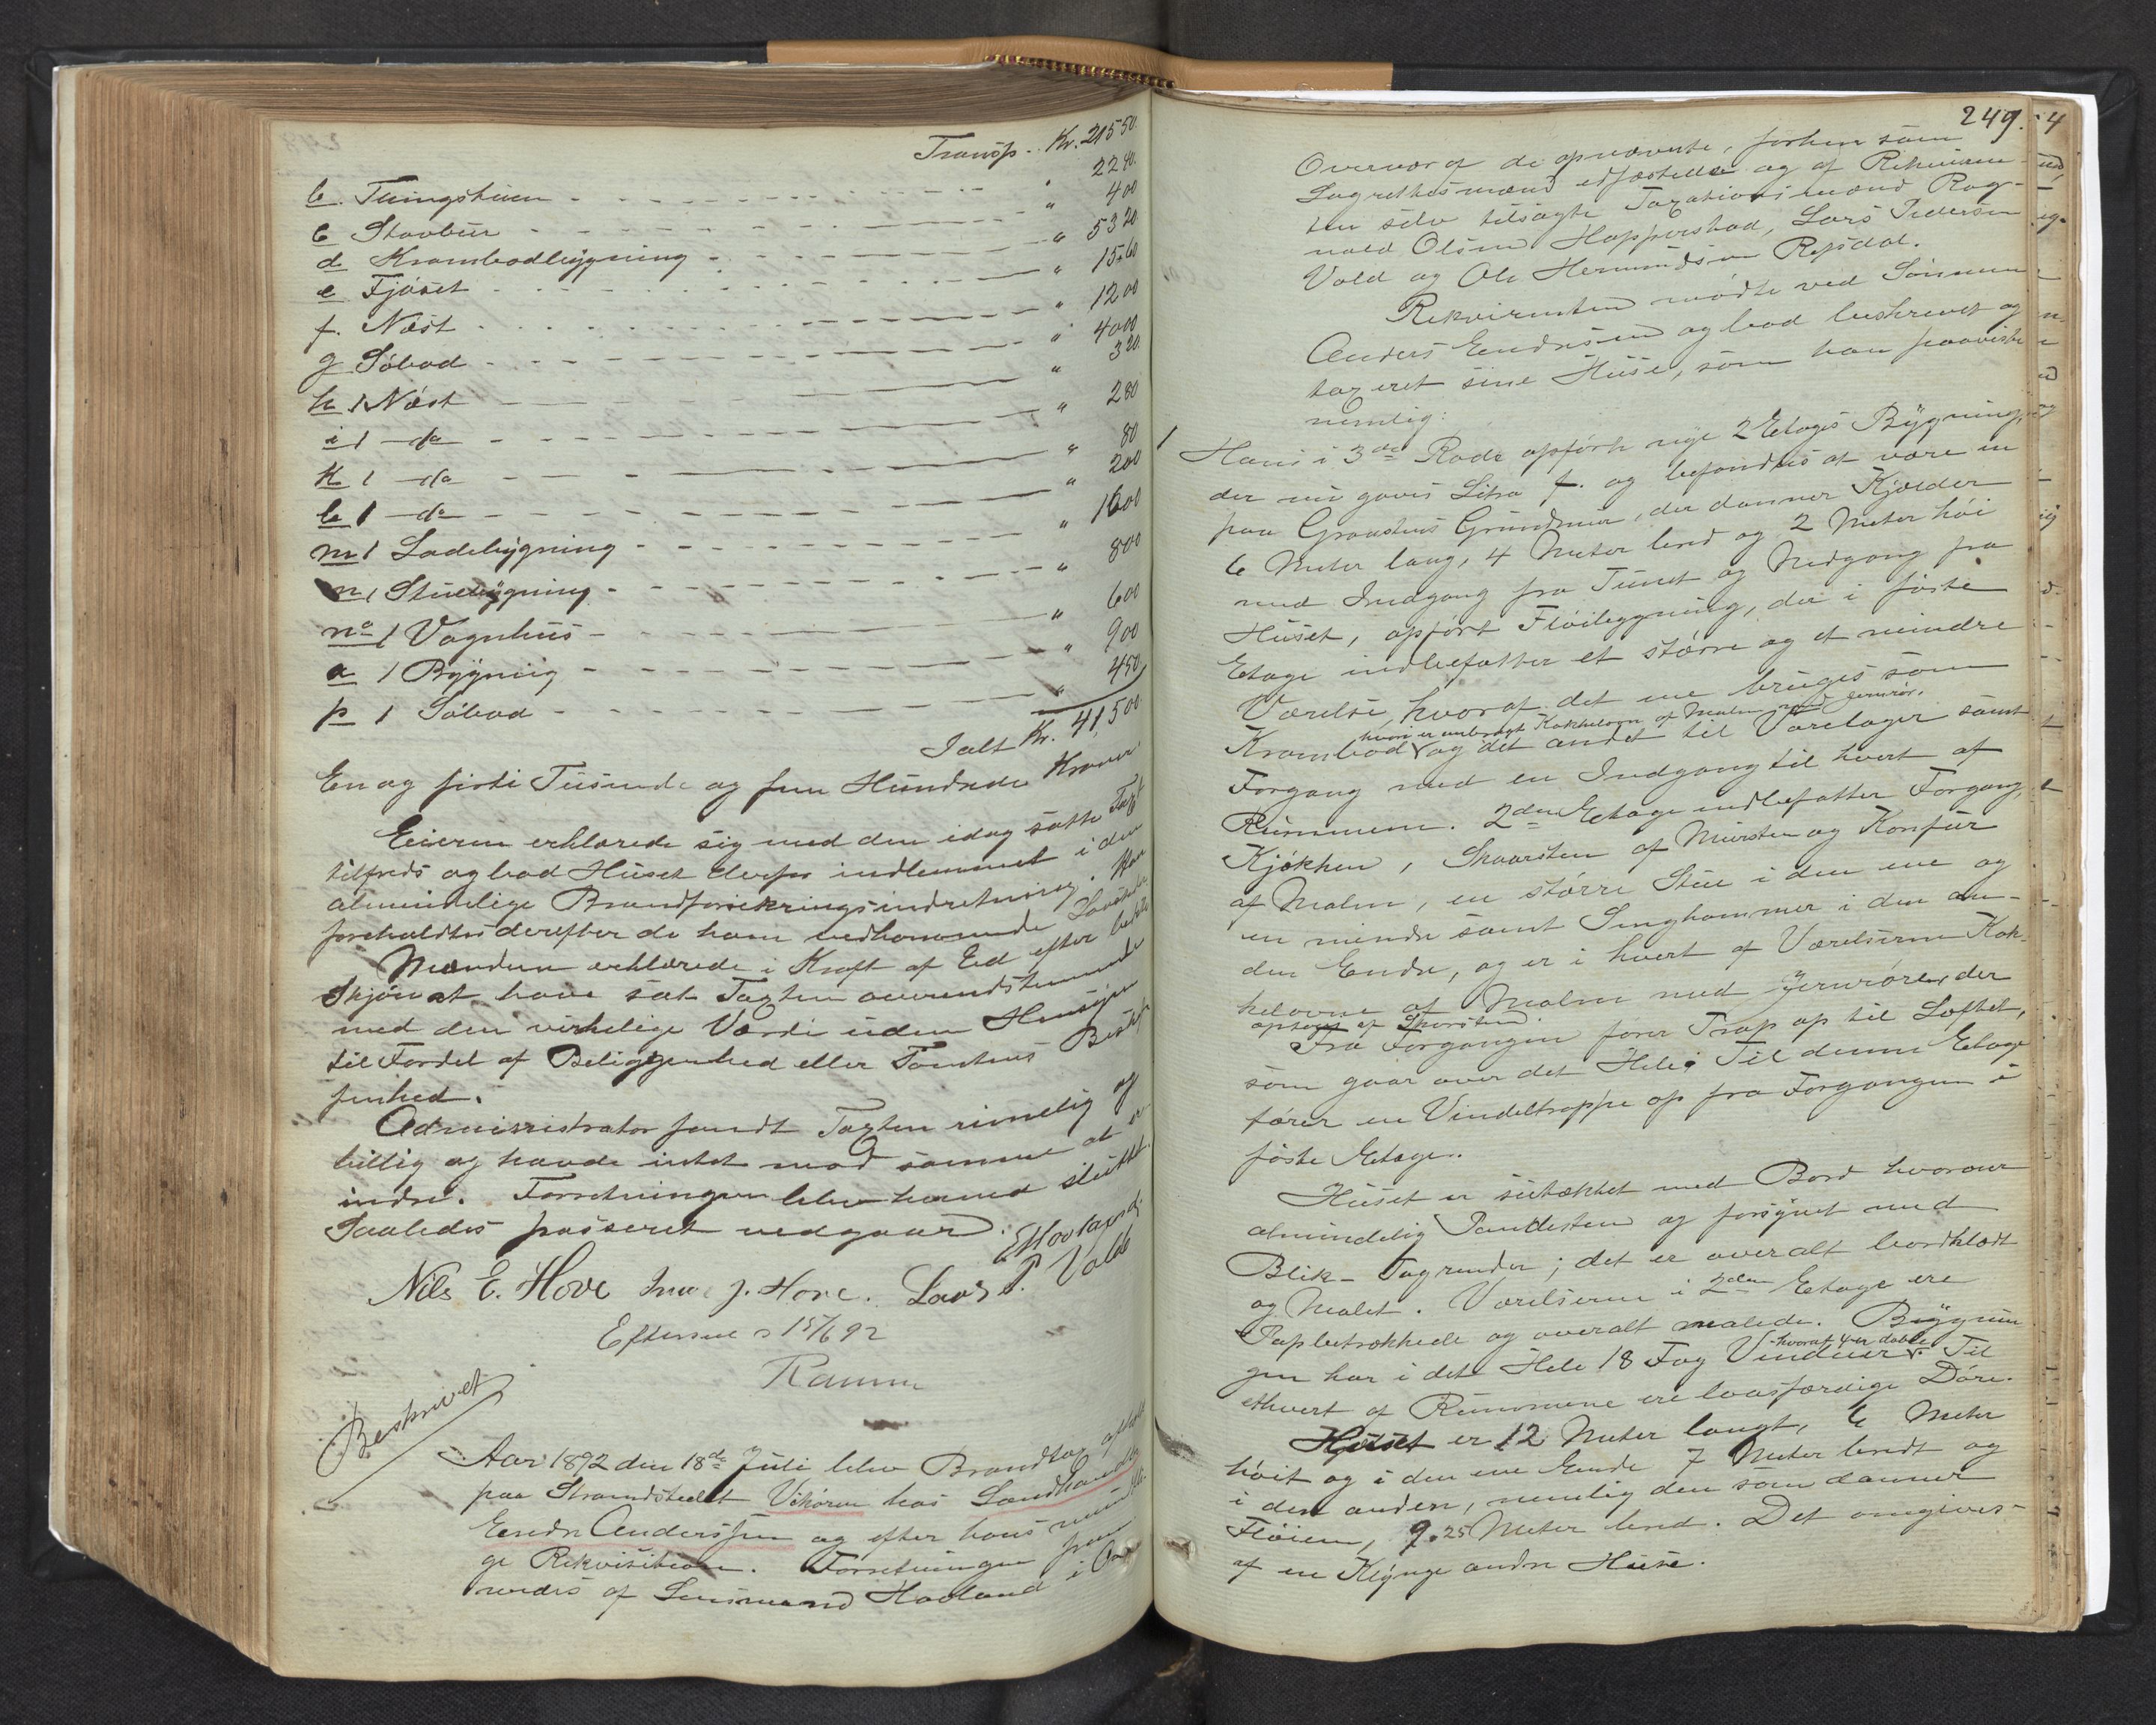 Transp. Kr. 21550.
b. Tuingstuen - - - " 2240.
c Stavbur - - - " 400
d Krambodbygning - - - " 5320
e Fjøset - - - " 1560
f. Nøst - - - " 1200
g Søbod - - - " 4000
h 1 Nøst - - - " 320.
i 1 do - - - " 280
k 1 do - - - " 80
l 1 do - - - " 200
m 1 Ladebygning - - - " 1600
n 1 Stuebygning - - - " 800
no 1 Vognhus - - - " 600
a 1 Bygning - - - " 900
p 1 Søbod - - - " 450.
Ialt Kr. 41,500.
En og firti Tusinde og fem Hundrede Kroner.
Eieren erklærede sig med den idag satte Taxt
tilfreds og bad Huset derfor indlemmet i den
almindelige Brandforsikringsindretning. Han
foreholdtes derefter de ham vedkommende Lovsteder
Mændene erklærede i Kraft af Ed efter bedste
Skjøn at have sat Taxten overensstemmende
med den virkelige Værdi uden Hensyn
til Fordel af Beliggenhed eller Tomtens Beskaf
fenhed.
Administrator fandt Taxten rimelig og
billig og havde intet mod samme at er
indre. Forretningen blev hermed sluttet.
Saaledes passeret vedgaar: EHovland
Nils E. Hove J. Hove. Lars P. Vold
Efterseet 15/6 92
Ramm
Beskrivet
Aar 1892 den 18de Juli blev Brandtax afholdt
paa Strandstedet Vikøren hos Landhandler
Endre Anderssen og efter hans mundtli
ge Rekvisition. Forretningen frem
medes af Lensmand Hovland i Over
249.
Overvær af de opnævnte, forhen som
Lagrettesmænd edfæstede og af Rekviren
ten selv tilsagte Taxationsmænd Rag-
nald Olsen Hopperstad, Lars Pedersen
Vold og Ole Hermundsen Refsdal.
Rekvirenten mødte ved Sønnen
Anders Endresen og bad beskrevet og
taxeret sine Huse, som han paaviste
nemlig:
1 Hans i 3die Rode opførte nye 2 Etages Bygning,
der nu gives Litra f. og befandtes at være en
paa Graastens Grundmur, der danner Kjælder
6 Meter lang, 4 Meter bred og 2 Meter høi
med Indgang fra Tunet og Nedgang fra
Huset, opført Fløibygning, der i første
Etage indbefatter et større og et mindre
Værelse, hvoraf det ene bruges som
hvori er anbragt Kakkelovn af Malm med Jernrør.
Krambod og det andet til Varelager samt
Forgang med en Indgang til hvert af
Rummene. 2den Etage indbefatter Forgang,
Kjøkken, Skorsten af Mursten og Komfur
af Malm, en større Stue i den ene og
en mindre samt Sengkammer i den an-
den Ende, og er i hvert af Værelserne Kak-
kelovne af Malm med Jernrøre, der
optages af Skorsten.
Fra Forgangen fører Trap op til Loftet,
som gaar over det Hele. Til denne Etage
fører en Vindeltrappe op fra Forgangen i
første Etage.
Huset er sutækket med Bord hvorover
almindelig Pandesten og forsynet med
Blik-Tagrender; det er overalt bordklædt
og Malet. Værelserne i 2den Etage ere
Papbetrækkede og overalt malede. Bygnin
hvoraf 4 er doble
gen har i det Hele 18 Fag Vinduer. Til
ethvert af Rummene ere laasfærdige Døre.
Huset er 12 Meter langt, 6 Meter
høit og i den ene Ende 7 Meter bredt og
i den anden, nemlig den som danner
Fløien, 9.25 Meter bred. Det omgives
af en Klynge andre Huse.